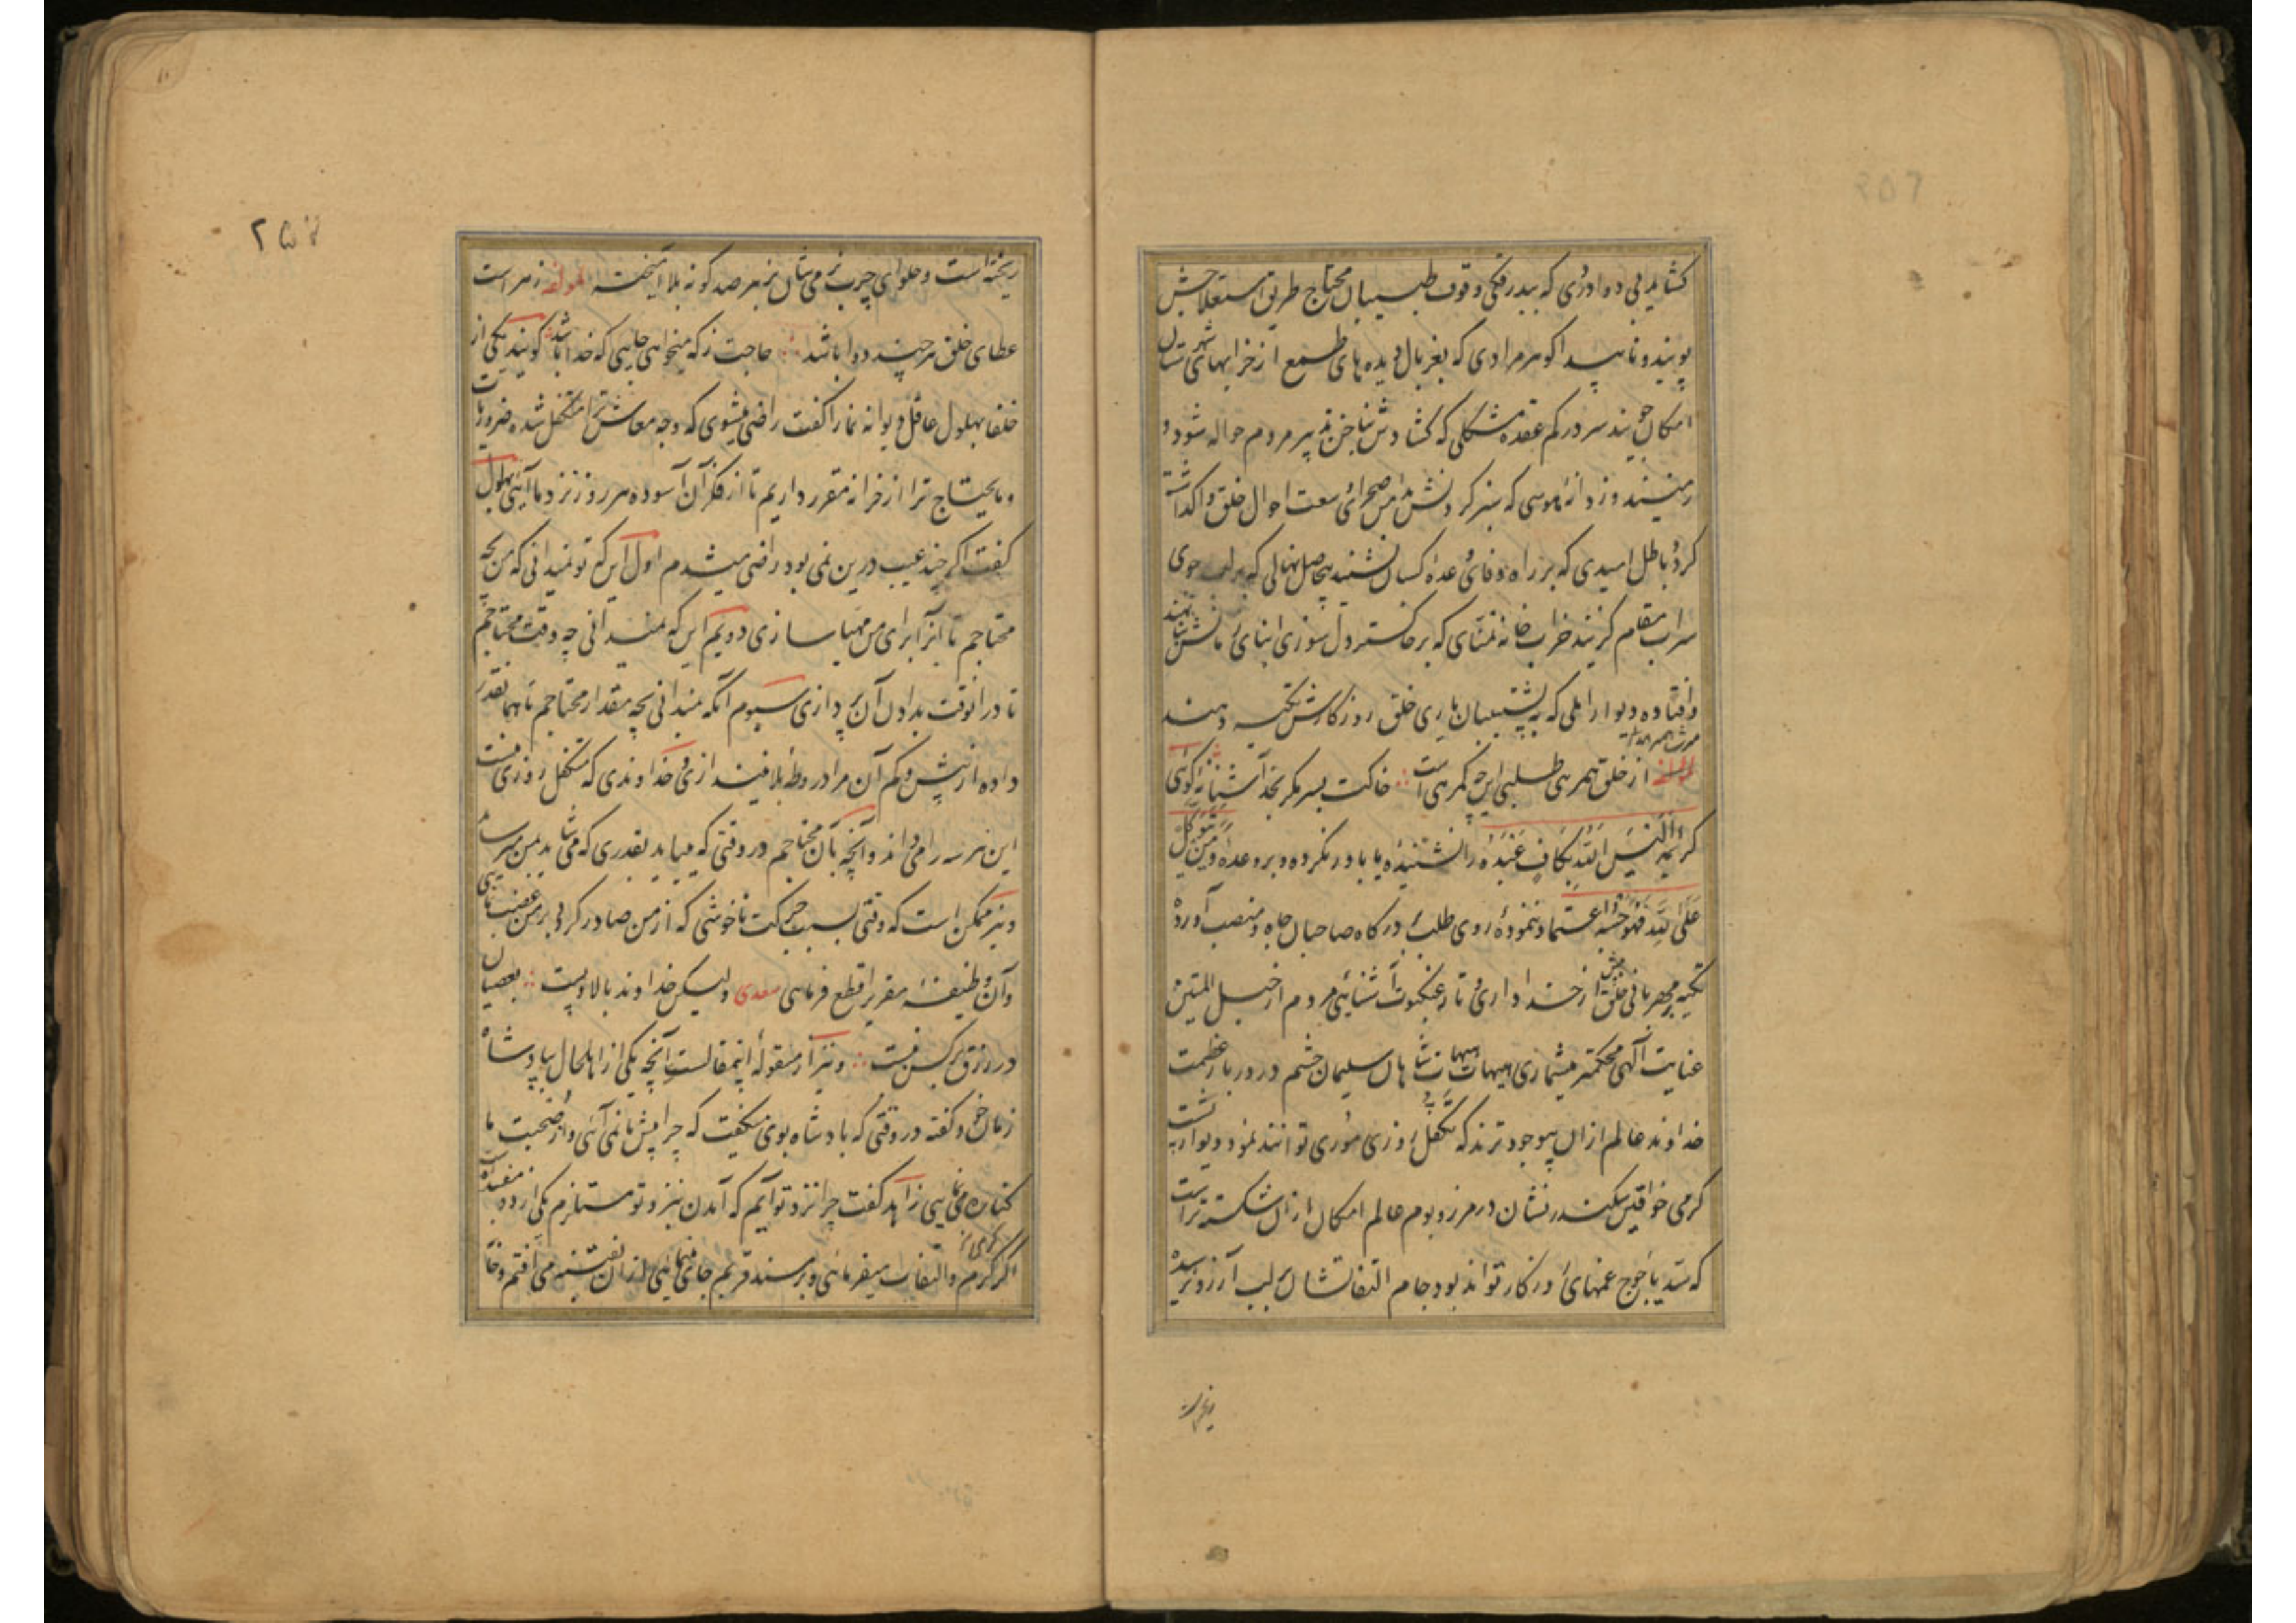 کشایند بی دوا دردی که ببدرقکی وقوف طبیبان محتاج طریق استعلاجش
پویند و ناپیدا کوهر مرادی که بغربال دیده های طمع از خرابهای شهرستان
امکان جویند سر درکم عقده مشکلی که کشادش بناخن تدبیر مردم حواله شود و
دانه موسی که سبز کردنش بدامن صحرای سعت احوال خلق واکذاشت
کردد باطل امیدی که بر راه وفای وعده کسان نشیند بیحاصل نهالی که بر لب جوی
سراب مقام کزیند خراب خانه تمنای که بر خاکستر دلسوزی ابنای بنا نهند
و افتاده دیوار املی که به پشتیبان یاری خلق روزکارش تکیه دهند
از خلق همرهی طلبی این چه کمرهی است خاکت بسر مکر بخدا آشنا نه کوئی
کریمه الیس الله بکاف عبده را نشنیده یا باور نکرده و بر وعده و من یتوکل
علی الله فهو حسبه اعتماد ننموده روی طلب بدرکاه صاحبان جاه و منصب آورده
تکیه بر مهربانی خلق از خدا داری و تار عنکبوت آشنایی مردم از حبل المتین
عنایت الهی محکمتر میشماری هیهات هیهات شاهان سلیمان حشم در دربار عظمت
خداوند عالم ازان بیوجودترند که تکفل روزی موری توانند نمود و دیوار پشت
کرمی خواقین سکندر نشان در مرز و بوم عالم امکان ازان شکسته تر است
که سد یاجوج غمهای روزکار تواند بود جام التفاتشان بلب آرزو نرسیده
ریخته است
۲۵۷
ریخته است و حلوای چرب نرمی شان بزهر صد کونه بلا آمیخته لمولفه زهر است
عطای خلق هر چند دوا باشد حاجت ز که میخواهی جایی که خدا باشد کویند یکی از
خلفا بهلول عاقل دیوانه نما را کفت راضی میشوی که وجه معاش ترا متکفل شده ضروریات
و مایحتاج ترا از خزانه مقرر داریم تا از فکر آن آسوده هر روز نزد ما آیی بهلول
کفت اکر چند عیب درین نمی بود راضی میشدم اول این که تو نمیدانی که من بچه
محتاجم تا آنرا برای من مهیا سازی دویم این که نمیدانی چه وقت محتاجم
تا در انوقت بداون آن پردازی سیوم آنکه نمیدانی بچه مقدار محتاجم تا همانقدر
داده از بیش و کم آن مرا در ورطه بلا نیندازی و خداوندی که متکفل روزی منست
این هر سه را می داند و آنچه بآن محتاجم در وقتی که میباید بقدری که می شاید بمن میرساند
و نیز ممکن است که وقتی بسبب حرکت ناخوشی که از من صادر کردد بر من غضب نمایی
و آن وظیفه مقرر را قطع فرمایی سعدی ولیکن خداوند بالا و پست بعصیان
در رزق بر کس نبست و نیز از مقوله اینمقالست آنچه یکی از اهل حال بپادشاه
زمان خود کفته در وقتی که پادشاه بوی میکفت که چرا پیش ما نمی آئی و از صحبت ما
کناره می نمایی زاهد کفت چرا نزد تو آیم که آمدن بنزد تو مستلزم یکی از دو مفسده است
اکر کرم و التفات میفرمائی و بر مسند قربم جا می نمائی ازان بفتنه می افتم و خا